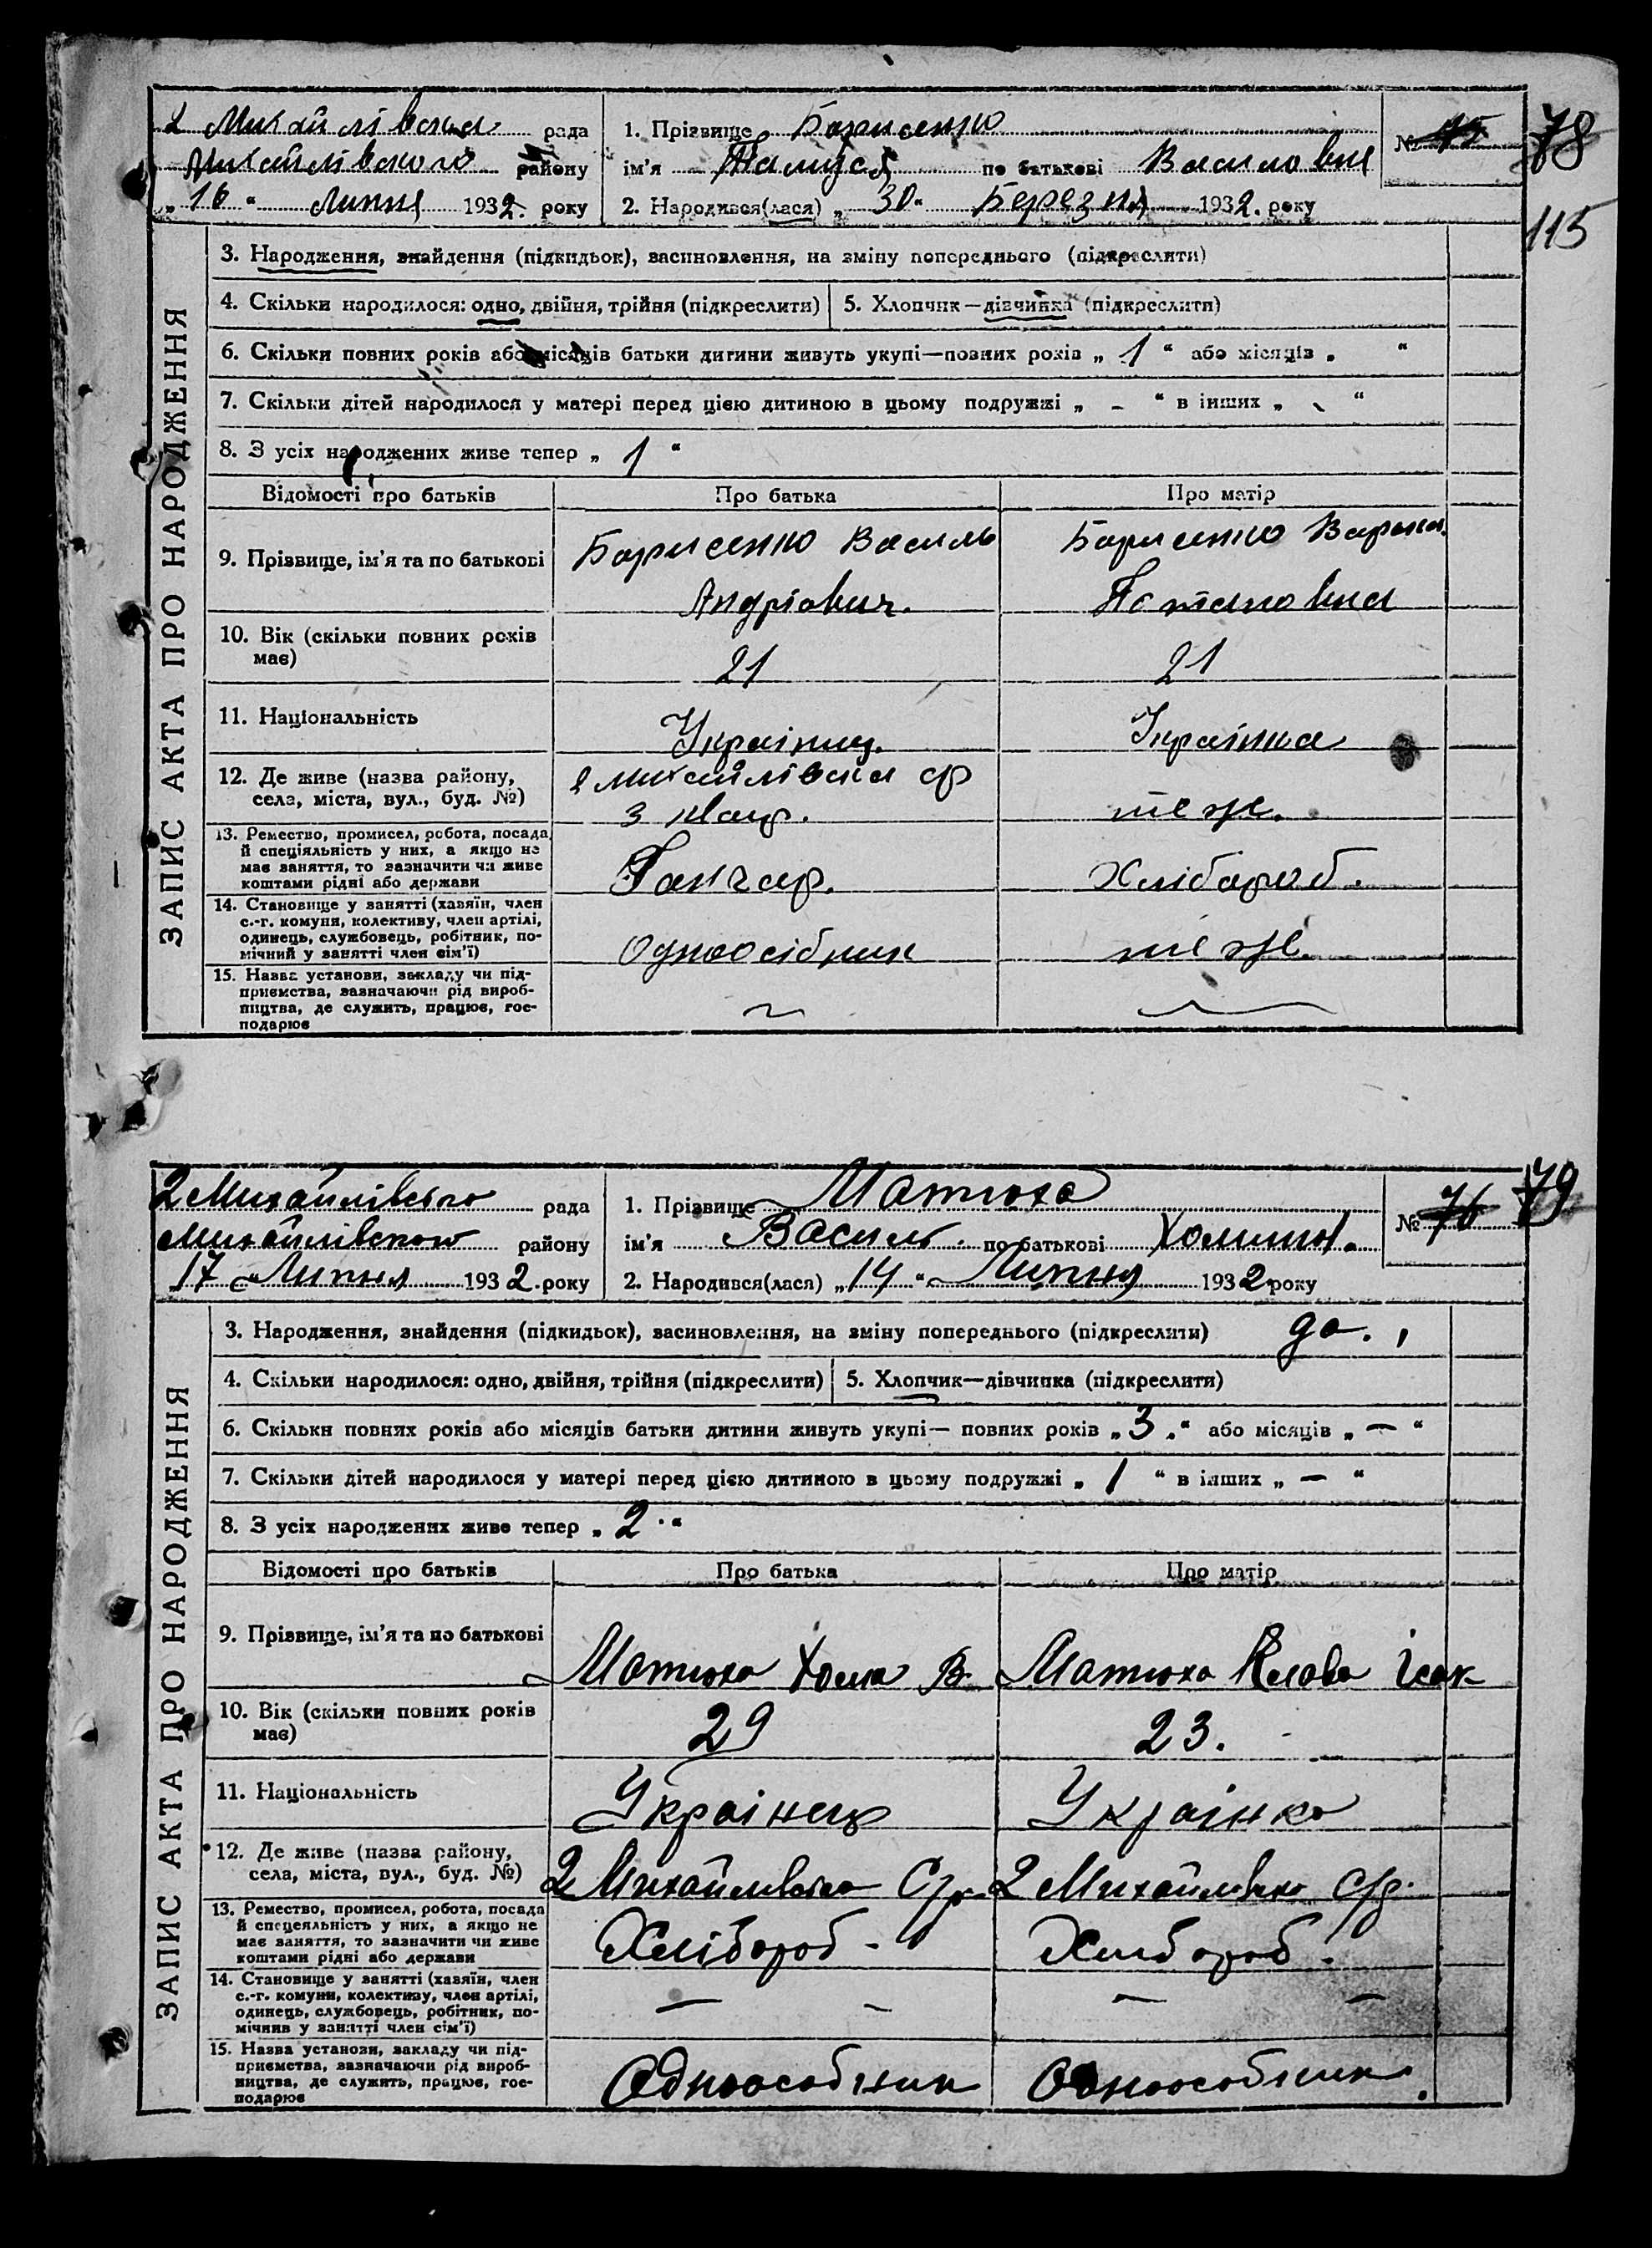 2 Михайлівська рада
Михайлівського району
„16“ Липня 1932. року
1. Прізвище Борисенко
ім'я по батькові Василовна
2. Народився(лася) „30“ Березня 1932. року
№ 75
78
115
ЗАПИС АКТА ПРО НАРОДЖЕННЯ
3. Народження, знайдення (підкидьок), васиновлення, на зміну попереднього (підкреслити)
4. Скільки народилося: одно, двійня, трійня (підкреслити)
5. Хлопчик—дівчинка (підкреслити)
6. Скільки повних років або місяців батьки дитини живуть укупі—повних років „ 1 “ або місяців „ “
7. Скільки дітей народилося у матері перед цією дитиною в цьому подружжі „ - “ в інших „ - “
8. З усіх народжених живе тепер „ 1 “
Відомості про батьків Про батька Про матір
9. Прізвище, ім'я та по батькові
Борисенко Василь
Андріович.
Борисенко Варвка.
Потаповна
10. Вік (скільки повних років
має)
21
21
11. Національність
Українец.
Українка
12. Де живе (назва району,
села, міста, вул., буд. №)
2 михайлівська ср
3 квар.
теж.
13. Ремество, промисел, робота, посада
й спеціяльність у них, а якщо не
має заняття, то зазначити чи живе
коштами рідні або держави
Гончар.
Хлібороб.
14. Становище у занятті (хазяїн, член
с.-г. комуни, колективу, член артілі,
одинець, службовець, робітник, по-
мічний у занятті член сім'ї)
Одноосібник
теж.
15. Назва установи, закладу чи під-
приємства, зазначаючи рід вироб-
ництва, де служить, працює, гос-
подарює
2 Михайлівська рада
Михайлівського району
„17“ Липня 1932. року
1. Прізвище Матюха
ім'я Василь. по батькові Хомич.
2. Народився(лася) „14“ Липня 1932 року
№ 76
79
ЗАПИС АКТА ПРО НАРОДЖЕННЯ
3. Народження, знайдення (підкидьок), васиновлення, на зміну попереднього (підкреслити) до.
4. Скільки народилося: одно, двійня, трійня (підкреслити)
5. Хлопчик—дівчинка (підкреслити)
6. Скільки повних років або місяців батьки дитини живуть укупі— повних років „3.“ або місяців „ — “
7. Скільки дітей народилося у матері перед цією дитиною в цьому подружжі „ 1 “ в інших „ — “
8. З усіх народжених живе тепер „ 2. “
Відомості про батьків Про батька Про матір
9. Прізвище, ім'я та по батькові
Матюха Хома В.
Матюха Ісак
10. Вік (скільки повних років
має)
29
23.
11. Національність
Українець
Українка
12. Де живе (назва району,
села, міста, вул., буд. №)
2 Михайлівська С/р.
2 Михайлівка С/р.
13. Ремество, промисел, робота, посада
й спецеяльність у них, а якщо не
має заняття, то зазначити чи живе
коштами рідні або держави
Хлібороб -
Хлібороб.
14. Становище у занятті (хазяїн, член
с.-г. комуни, колективу, член артілі,
одинець, службовець, робітник, по-
мічнив у занятті член сім'ї)
— —
— —
15. Назва установи, закладу чи під-
приємства, зазначаючи рід вироб-
ництва, де служить, працює, гос-
подарює
Одноособник
Одноособник.